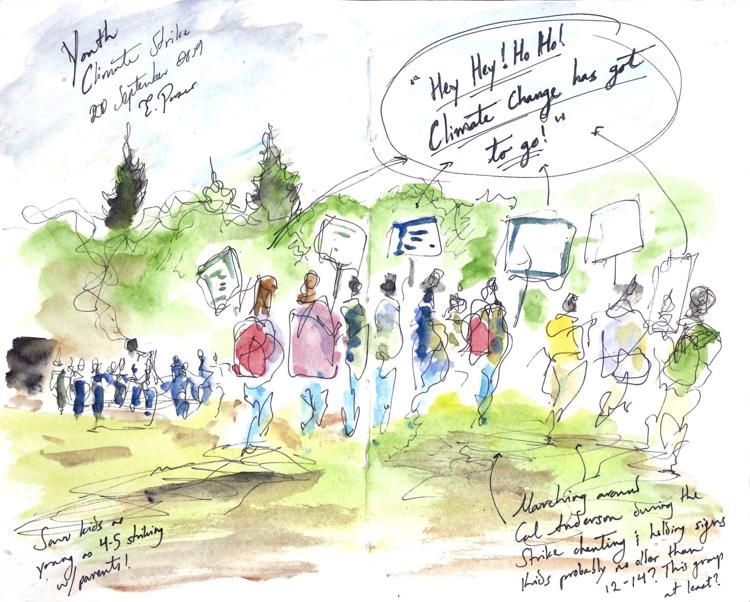 Youth
Climate Strike
20 September 2019
"Hey Hey! Ho Ho!
Climate Change has got
to go!"
Saw kids as
young as 4-5 striking
w/ parents!
Marching around
Cal Anderson during the
Strike chanting & holding signs
Kids probably no older than
12-14? This group
at least?